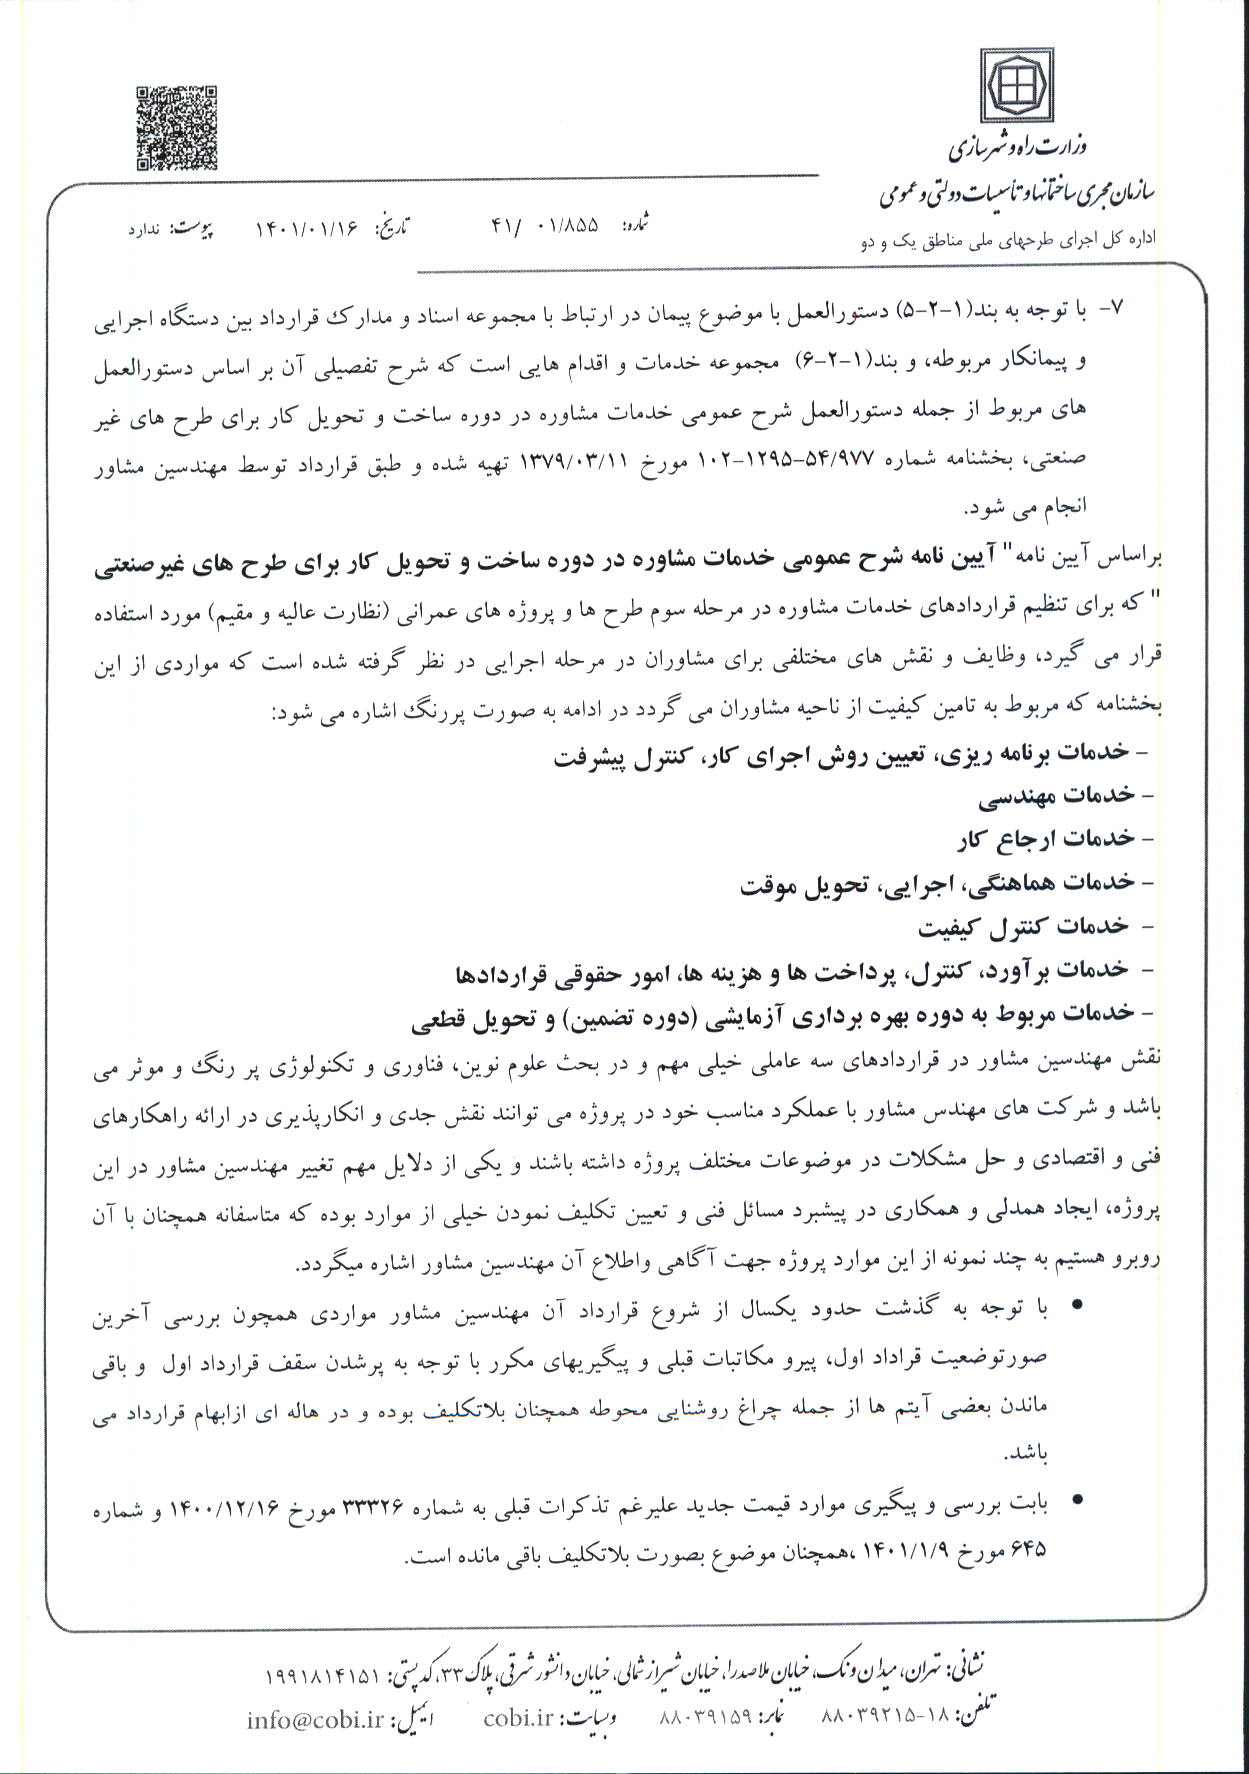 وزارت راه و شهرسازی
سازمان مجری ساختمانها و تأسیسات دولتی و عمومی
اداره کل اجرای طرحهای ملی مناطق یک و دو
شماره: ۰۱/۸۵۵ /۴۱ تاریخ: ۱۴۰۱/۰۱/۱۶ پیوست: ندارد
۷- با توجه به بند(۱-۲-۵) دستورالعمل با موضوع پیمان در ارتباط با مجموعه اسناد و مدارک قرارداد بین دستگاه اجرایی
و پیمانکار مربوطه، و بند(۱-۲-۶) مجموعه خدمات و اقدام هایی است که شرح تفصیلی آن بر اساس دستورالعمل
های مربوط از جمله دستورالعمل شرح عمومی خدمات مشاوره در دوره ساخت و تحویل کار برای طرح های غیر
صنعتی، بخشنامه شماره ۵۴/۹۷۷-۱۲۹۵-۱۰۲ مورخ ۱۳۷۹/۰۳/۱۱ تهیه شده و طبق قرارداد توسط مهندسین مشاور
انجام می شود.
براساس آیین نامه" آیین نامه شرح عمومی خدمات مشاوره در دوره ساخت و تحویل کار برای طرح های غیرصنعتی
" که برای تنظیم قراردادهای خدمات مشاوره در مرحله سوم طرح ها و پروژه های عمرانی (نظارت عالیه و مقیم) مورد استفاده
قرار می گیرد، وظایف و نقش های مختلفی برای مشاوران در مرحله اجرایی در نظر گرفته شده است که مواردی از این
بخشنامه که مربوط به تامین کیفیت از ناحیه مشاوران می گردد در ادامه به صورت پررنگ اشاره می شود:
- خدمات برنامه ریزی، تعیین روش اجرای کار، کنترل پیشرفت
- خدمات مهندسی
- خدمات ارجاع کار
- خدمات هماهنگی، اجرایی، تحویل موقت
- خدمات کنترل کیفیت
- خدمات برآورد، کنترل، پرداخت ها و هزینه ها، امور حقوقی قراردادها
- خدمات مربوط به دوره بهره برداری آزمایشی (دوره تضمین) و تحویل قطعی
نقش مهندسین مشاور در قراردادهای سه عاملی خیلی مهم و در بحث علوم نوین، فناوری و تکنولوژی پر رنگ و موثر می
باشد و شرکت های مهندس مشاور با عملکرد مناسب خود در پروژه می توانند نقش جدی و انکارپذیری در ارائه راهکارهای
فنی و اقتصادی و حل مشکلات در موضوعات مختلف پروژه داشته باشند و یکی از دلایل مهم تغییر مهندسین مشاور در این
پروژه، ایجاد همدلی و همکاری در پیشبرد مسائل فنی و تعیین تکلیف نمودن خیلی از موارد بوده که متاسفانه همچنان با آن
روبرو هستیم به چند نمونه از این موارد پروژه جهت آگاهی واطلاع آن مهندسین مشاور اشاره میگردد.
• با توجه به گذشت حدود یکسال از شروع قرارداد آن مهندسین مشاور مواردی همچون بررسی آخرین
صورتوضعیت قراداد اول، پیرو مکاتبات قبلی و پیگیریهای مکرر با توجه به پرشدن سقف قرارداد اول و باقی
ماندن بعضی آیتم ها از جمله چراغ روشنایی محوطه همچنان بلاتکلیف بوده و در هاله ای ازابهام قرارداد می
باشد.
• بابت بررسی و پیگیری موارد قیمت جدید علیرغم تذکرات قبلی به شماره ۳۳۳۲۶ مورخ ۱۴۰۰/۱۲/۱۶ و شماره
۶۴۵ مورخ ۱۴۰۱/۱/۹ ،همچنان موضوع بصورت بلاتکلیف باقی مانده است.
نشانی: تهران، میدان ونک، خیابان ملاصدرا، خیابان شیراز شمالی، خیابان دانشور شرقی، پلاک ۳۳، کدپستی: ۱۹۹۱۸۱۴۱۵۱
تلفن: ۱۸-۸۸۰۳۹۲۱۵ نمابر: ۸۸۰۳۹۱۵۹ وبسایت: cobi.ir ایمیل: info@cobi.ir